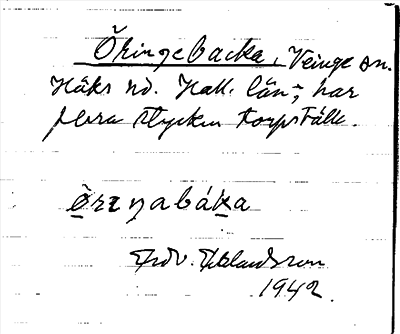 Öringebacka, Veinge sn.
Höks hd. Hall. län, har
flera stycken torpställe.
örıŋabáka
1942.